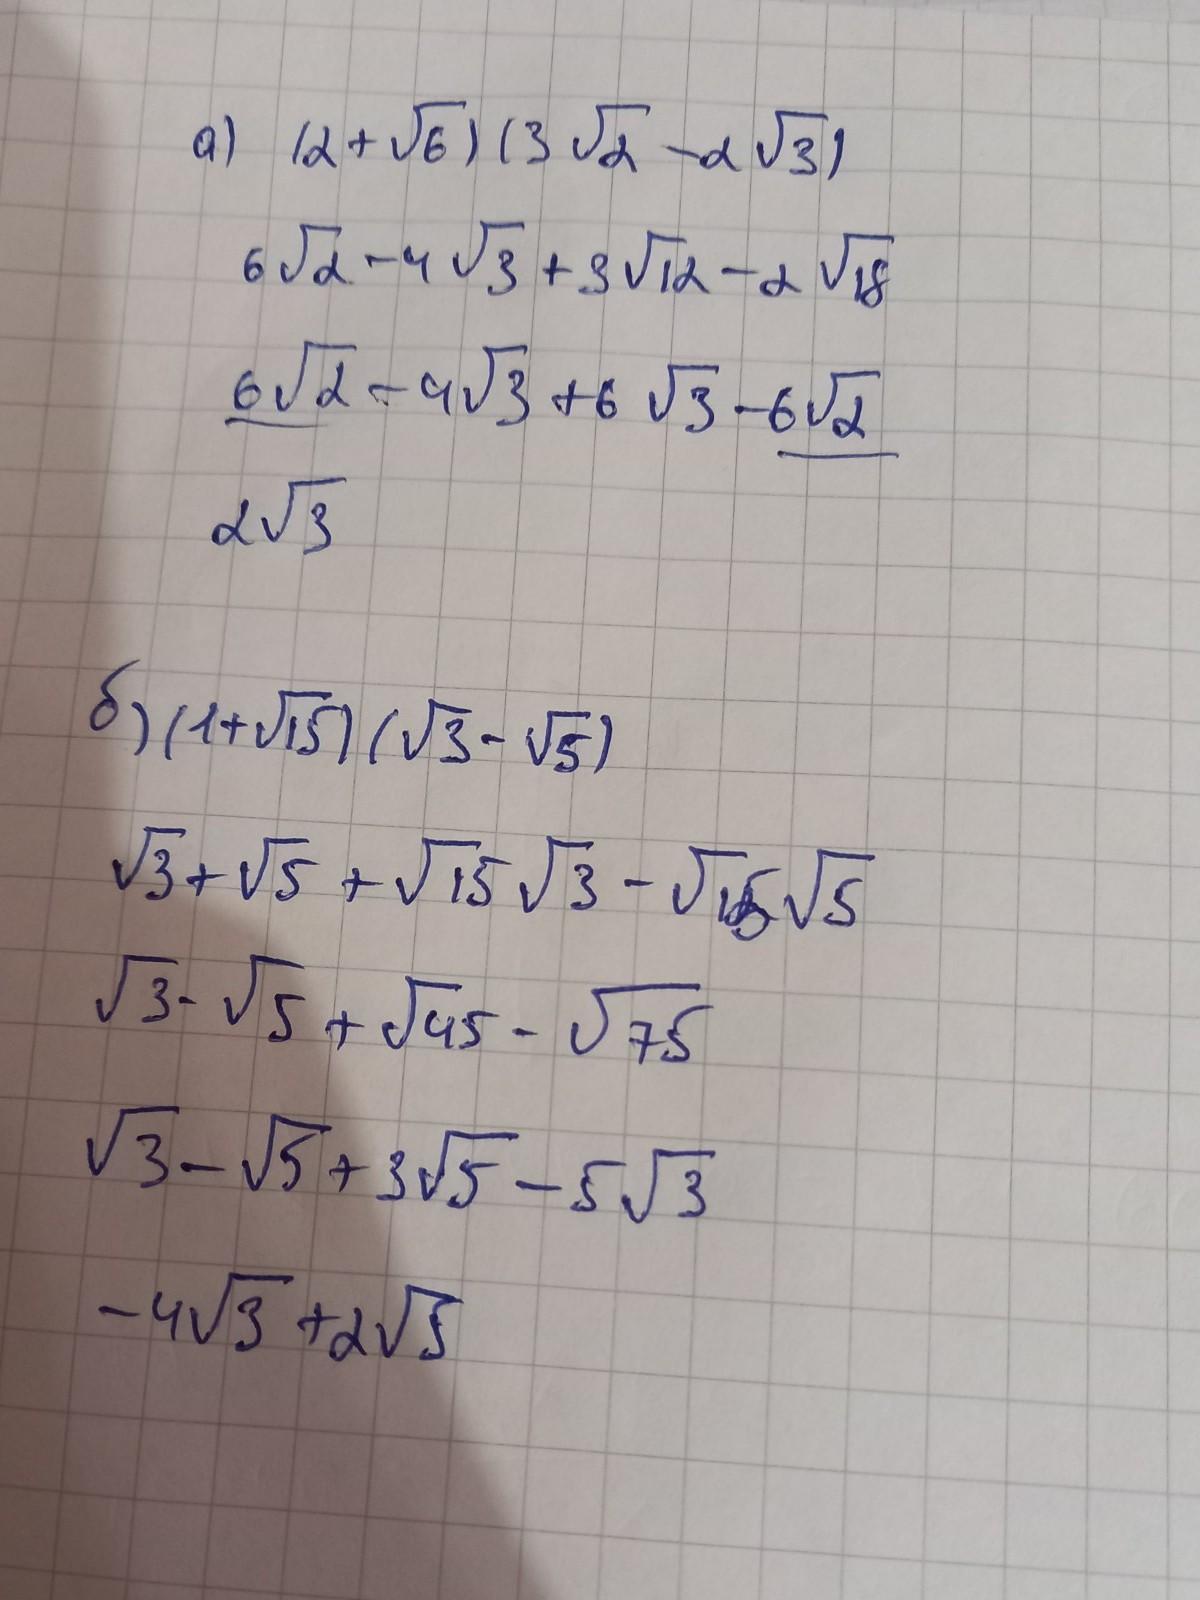 а) (2+√6)(3√2-2√3)
6√2-4√3+3√12-2√18
6√2-4√3+6√3-6√2
2√3
б) (1+√15)(√3-√5)
√3+√5+√15√3-√15√5
√3-√5+√45-√75
√3-√5+3√5-5√3
-4√3+2√5